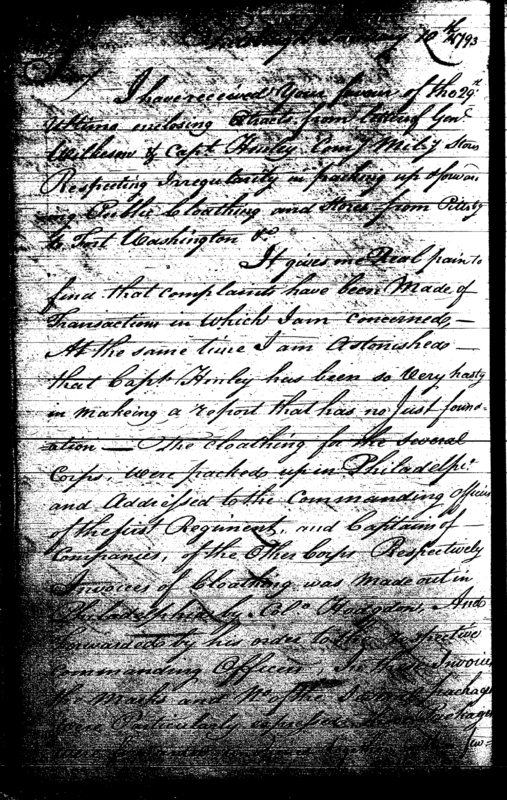 10th 1793
Sir
I have received Your favour of the 29th
Ultimo enclosing Extracts from letters of Genl
Wilkeson & Capt Henley Comy Milty Stores
Respecting Irregularity in packing up & forwar
ing Public Cloathing and Stores from Pittsbg
to Fort Washington &c
It gives me Real pain to
find that complaints have been Made of
Transactions in Which I am concerned, —
At the same time I am Astonished —
that Capt Henley has been so Very hasty
in makeing a report that has no Just found-
ation — The Cloathing for the several
Corps, were packed up in Philadelpa
and Addressed to the Commanding Officer
of the first Regiment, and Captains of
Companies, of the Other Corps Respectively
Invoices of Cloathing was made out in
Philadelphia by Colo Hodgdon, And
forwarded by his order to the respective
Commanding Officers, In these Invoices
the marks and No of the packages
were Particularly expressed these Packages
were